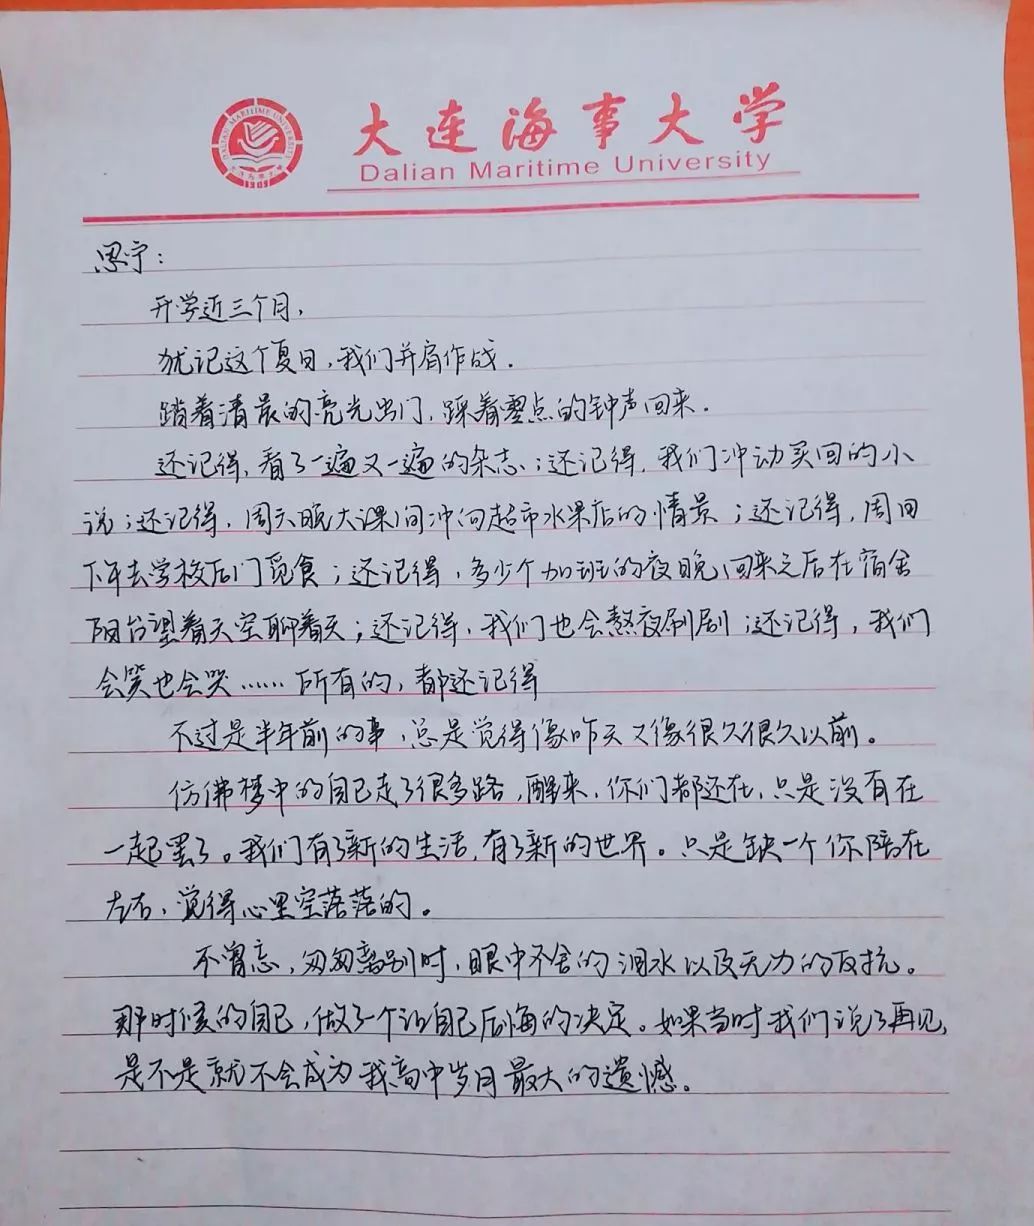 大连海事大学
Dalian Maritime University
DALIAN MARITIME UNIVERSITY
1909
思宁：
开学近三个月，
犹记这个夏日，我们并肩作战．
踏着清晨的亮光出门，踩着零点的钟声回来．
还记得，看了一遍又一遍的杂志；还记得，我们冲动买回的小
说；还记得，周六晚大课间冲向超市水果店的情景；还记得，周日
下午去学校后门觅食；还记得，多少个加班的夜晚，回来之后在宿舍
阳台望着天空聊着天；还记得，我们也会熬夜刷剧；还记得，我们
会笑也会哭……所有的，都还记得
不过是半年前的事，总是觉得像昨天又像很久很久以前。
仿佛梦中的自己走了很多路，醒来，你们都还在，只是没有在
一起罢了。我们有了新的生活，有了新的世界。只是缺一个你陪在
左右，觉得心里空落落的。
不曾忘，匆匆离别时，眼中不舍的泪水以及无力的反抗。
那时候的自己，做了一个让自己后悔的决定。如果当时我们说了再见，
是不是就不会成为我高中岁月最大的遗憾。